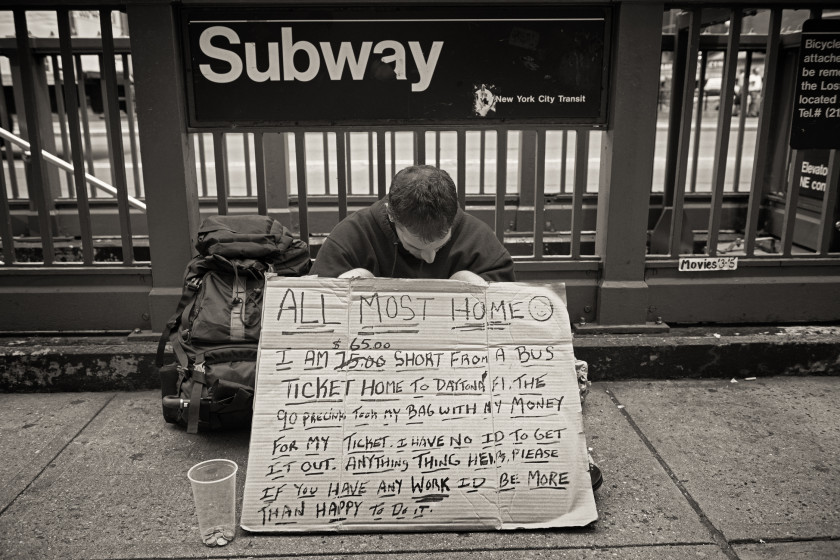 Subway
New York City Transit
Bicycle
attache
be rem
the Los
located
Tel.# (21
Elevato
NE con
Movies
ALL MOST HOME
$ 65.00
I AM 75.00 SHORT FROM A BUS
TICKET HOME TO DAYTONA Fl. THE
90 PRECINK TOOK MY BAG WITH MY MONEY
FOR MY TICKET. I HAVE NO ID TO GET
IT OUT. ANYTHING THING HELPS, PLEASE
IF YOU HAVE ANY WORK ID BE MORE
THAN HAPPY TO DO IT.